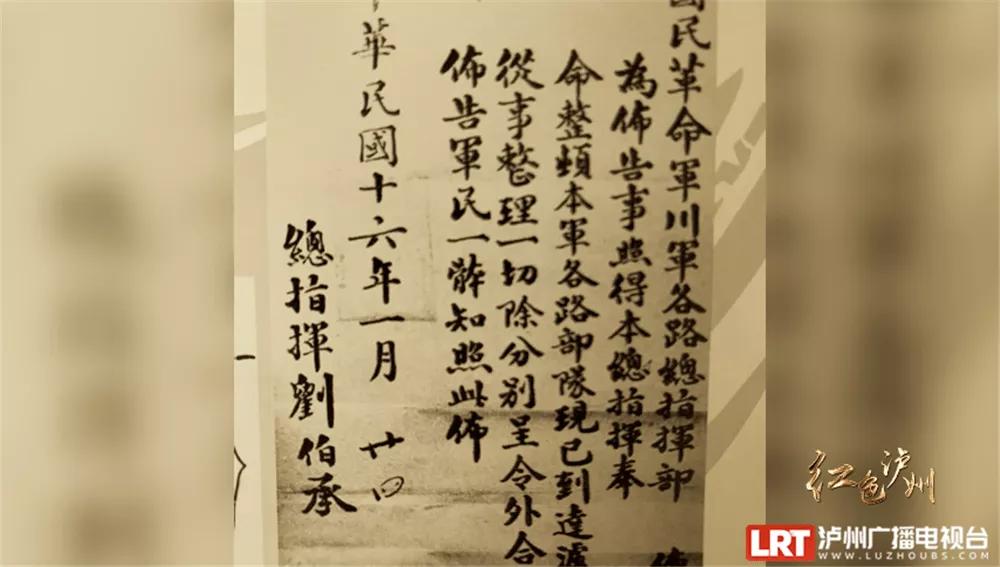 國民革命軍川軍各路總指揮部
為佈告事照得本總指揮奉
命整頓本軍各路部隊現已到達瀘
從事整理一切除分別呈令外合
佈告軍民一體知照此佈
華民國十六年一月 廿四
總指揮劉伯承
红色泸州
LRT 泸州广播电视台
WWW.LUZHOUBS.COM